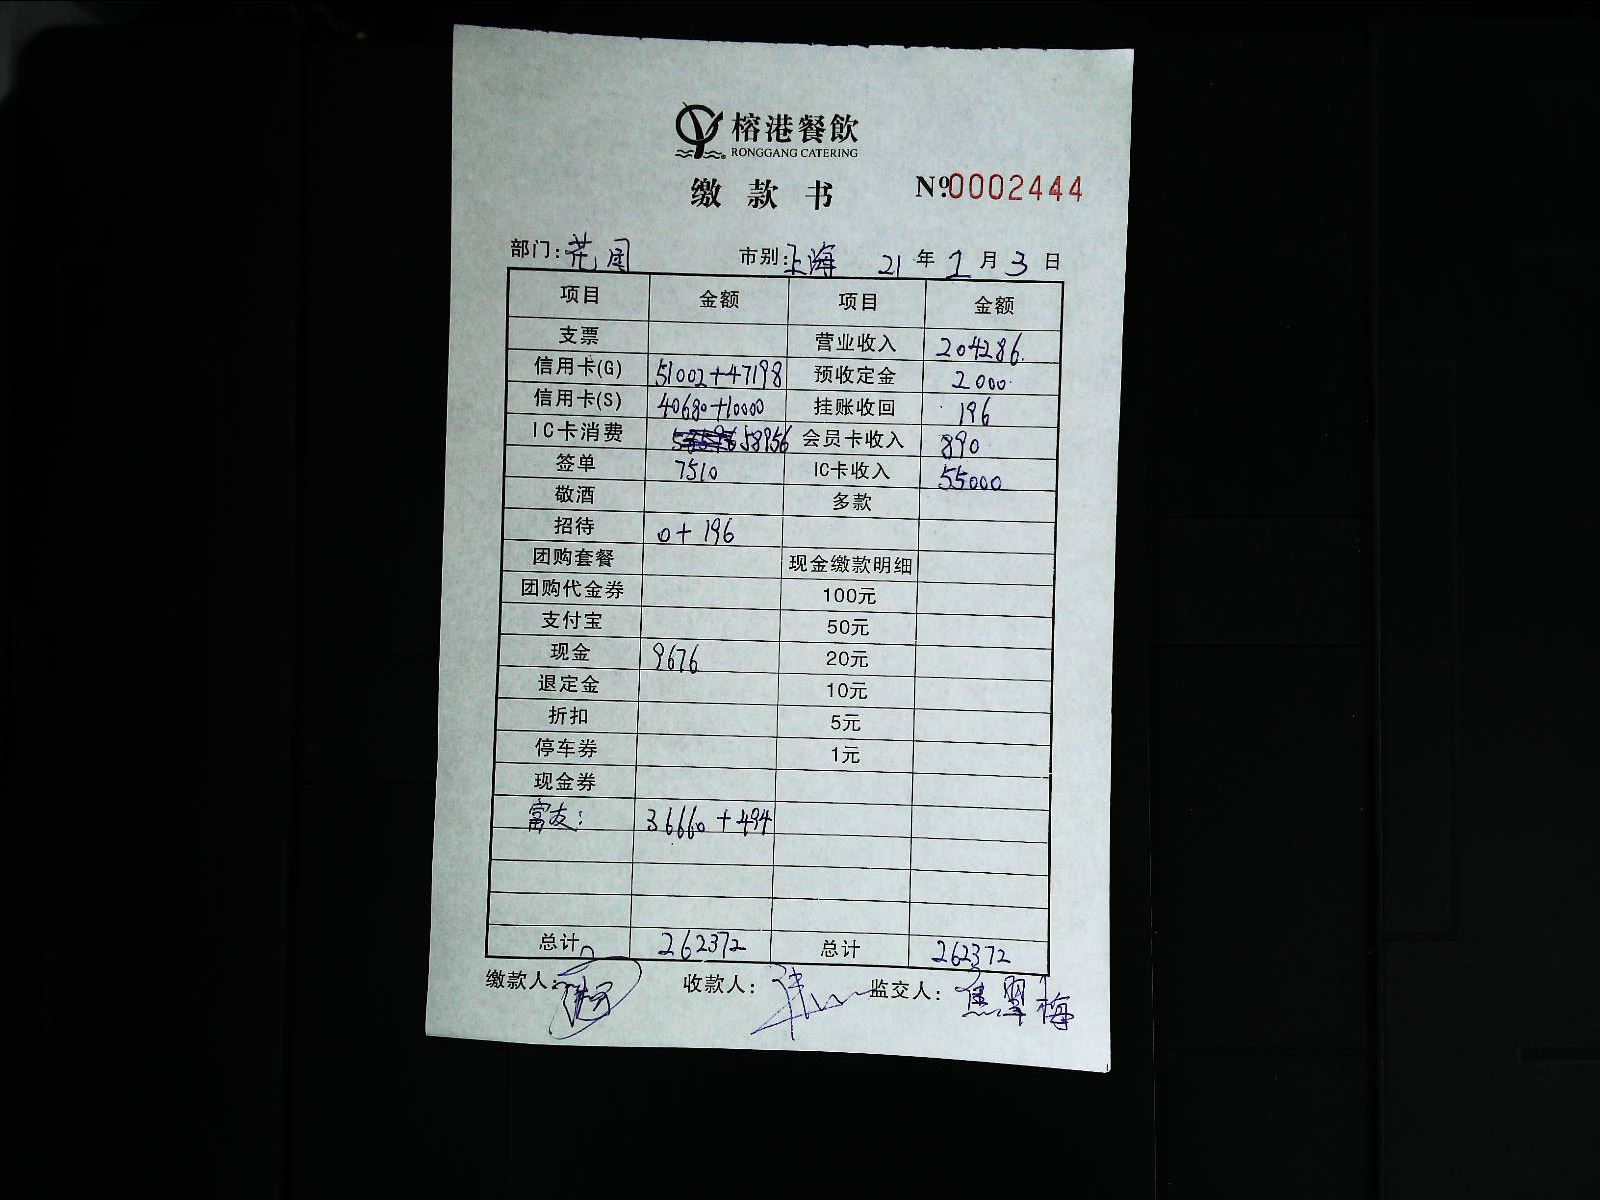 榕港餐飲
RONGGANG CATERING
缴款书
Nº0002444
部门: 花园 市别: 上海 21 年 1 月 3 日
项目 金额 项目 金额
支票 营业收入 204286.
信用卡(G) 51002+47198 预收定金 2000.
信用卡(S) 40680+10000 挂账收回 196
IC卡消费 58956 会员卡收入 890
签单 7510 IC卡收入 55000
敬酒 多款
招待 0+196
团购套餐 现金缴款明细
团购代金券 100元
支付宝 50元
现金 9676 20元
退定金 10元
折扣 5元
停车券 1元
现金券
富友: 36660+494
总计 262372 总计 262372
缴款人: 收款人: 监交人: 焦翠梅